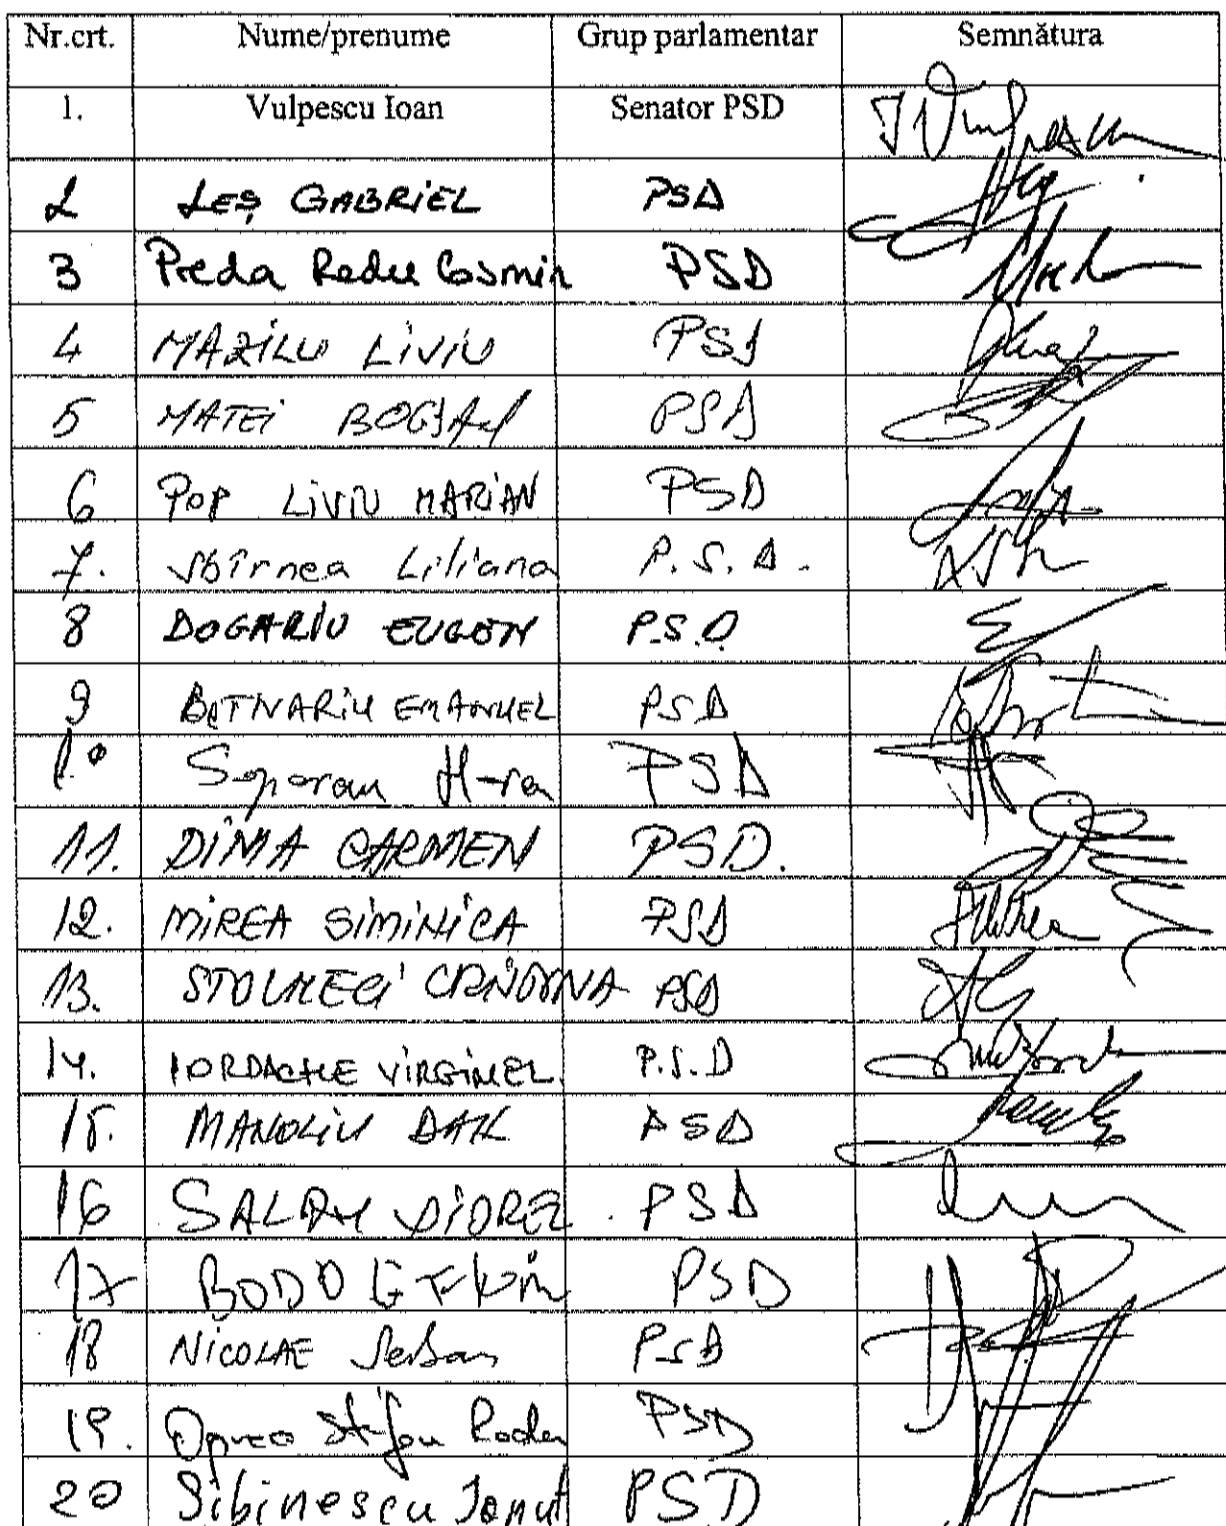 Nr.crt. Nume/prenume Grup parlamentar Semnătura
1. Vulpescu Ioan Senator PSD
2 LEȘ GABRIEL PSD
3 Preda Radu Cosmin PSD
4 MAZILU LIVIU PSD
5 MATEI BOGDAN PSD
6 POP LIVIU MARIAN PSD
7. Sbîrnea Liliana P.S.D.
8 DOGARIU EUGEN P.S.D
9 BOTNARIU EMANUEL PSD
10 PSD
11. DIMA CARMEN PSD.
12. MIREA SIMINICA PSD
13. PSD
14. IORDACHE VIRGINEL P.S.D
15. MANOLIU DAN PSD
16 SALAN VIOREL PSD
17 PSD
18 NICOLAE Serban PSD
19. Oprea Stefan Radu PSD
20 Sibinescu Ionut PSD